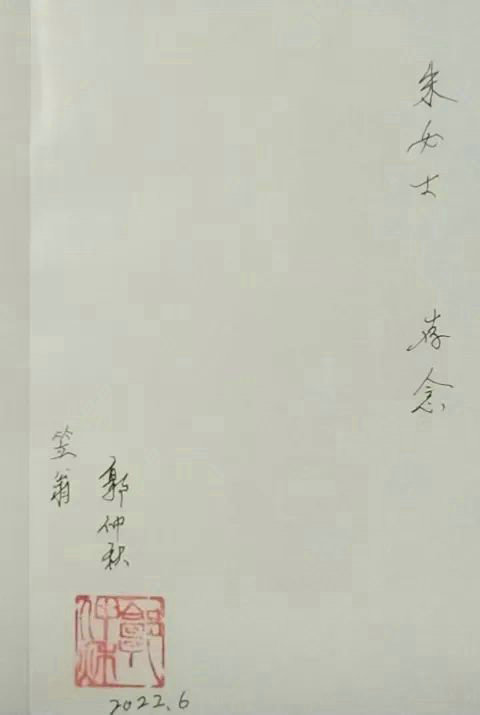 朱女士 存念
郭仲秋
笠翁
郭仲秋
2022.6